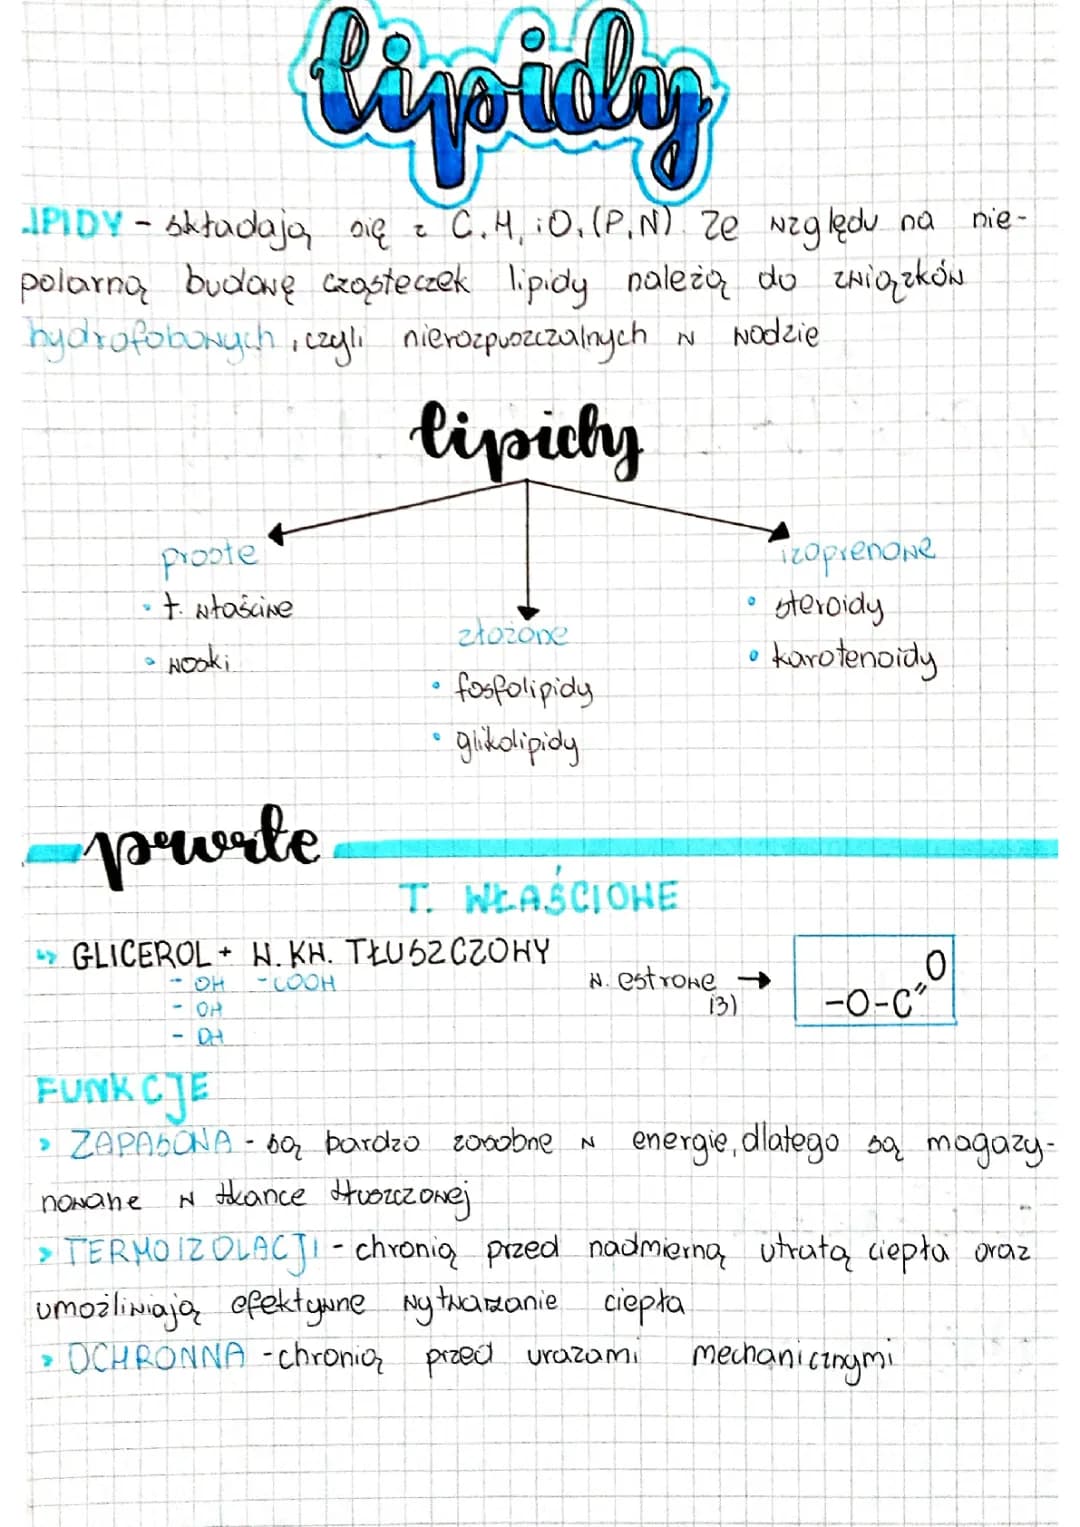 lipidy
LIPIDY - składają się z C, H, i O, (P, N). Ze względu na nie-
polarną budowę cząsteczek lipidy należą do związków
hydrofobowych, czyli nierozpuszczalnych w wodzie
lipidy
proste
• t. właściwe
• woski
złożone
• fosfolipidy
• glikolipidy
izoprenowe
• steroidy
• karotenoidy
proste
T. WŁAŚCIWE
↳ GLICEROL + W. KW. TŁUSZCZOWY
- OH - COOH
- OH
- OH
w. estrowe →
(3)
-O-C=O
FUNKCJE
> ZAPASOWA - są bardzo zasobne w energię, dlatego są magazy-
nowane w tkance tłuszczowej
> TERMOIZOLACJI - chronią przed nadmierną utratą ciepła oraz
umożliwiają efektywne wytwarzanie ciepła
> OCHRONNA - chronią przed urazami mechanicznymi